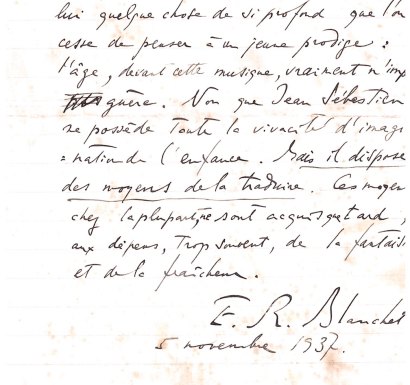 lui quelque chose de si profond que l'on
cesse de penser à un jeune prodige :
l'âge, devant cette musique, vraiment n'imp
guère. Non que Jean Sébastien
ne possède toute la vivacité d'imagi
= nation de l'enfance. Mais il dispose
des moyens de la traduire. Ces moyen
chez la plupart, ne sont acquis que tard,
aux dépens, trop souvent, de la fantais
et de la fraîcheur.
E. R. Blanchet
5 novembre 1937.